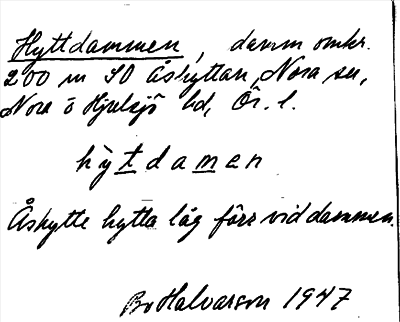 Hyttdammen, damm omkr.
200 m SO Åshyttan, Nora sn,
Nora o Hjulsjö bd, Ör. l.
hy̆tdamen
Åshytte hytta låg förr vid dammen.
Bo Halvarson 1947